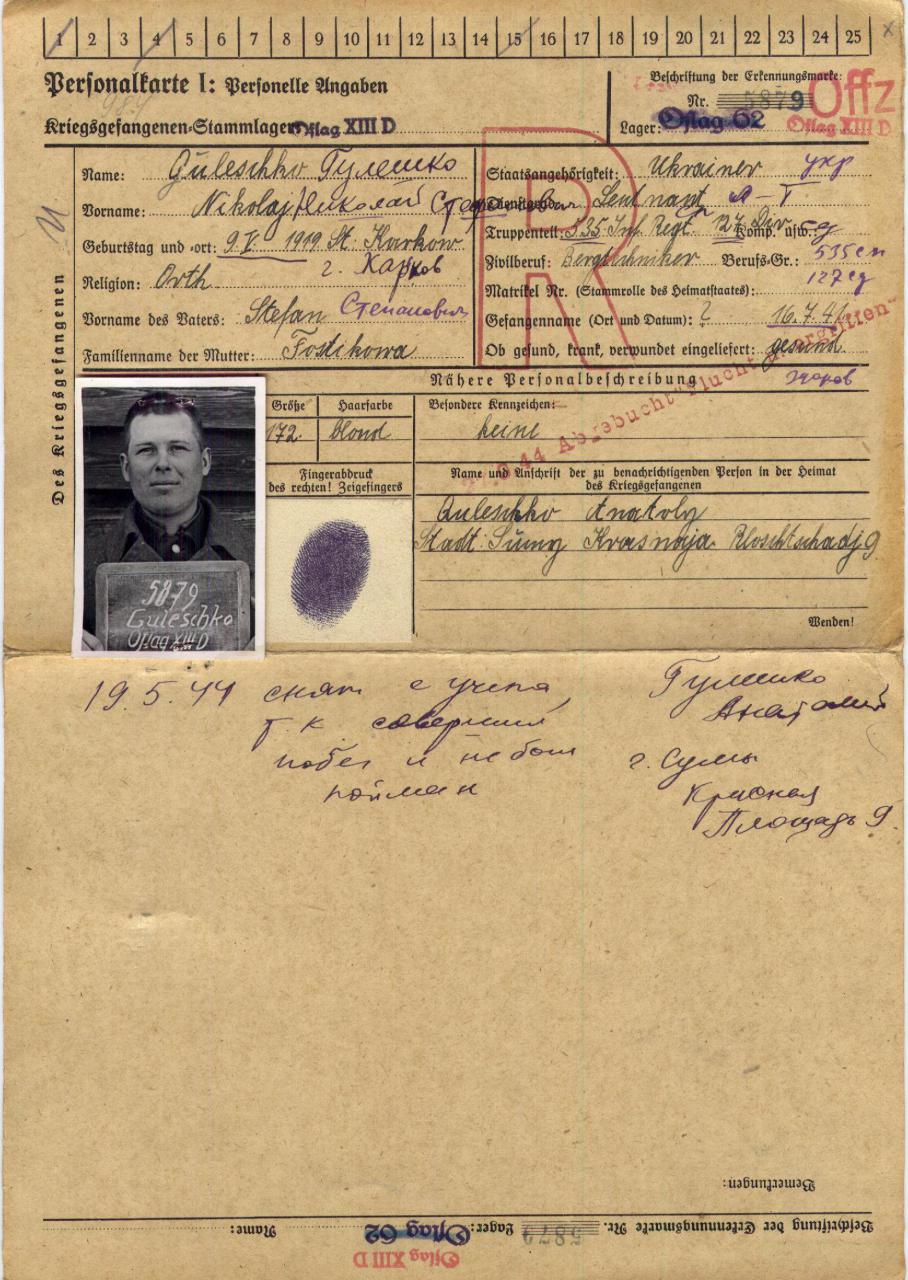 1 2 3 4 5 6 7 8 9 10 11 12 13 14 15 16 17 18 19 20 21 22 23 24 25
Personalkarte I: Personelle Angaben
Kriegsgefangenen-Stammlager: Oflag XIII D
Beschriftung der Erkennungsmarke:
Nr. 5879
Lager: Oflag 62
Offz
Oflag XIII D
Des Kriegsgefangenen
Name: Guleschko Гулешко
Vorname: Nikolaj Николай Степанович
Geburtstag und -ort: 9.V. 1919 St. Karkow
г. Харков
Religion: Orth
Vorname des Vaters: Stefan Степанович
Familienname der Mutter: Fosikowa
R
Staatsangehörigkeit: Ukrainer укр
Dienstgrad: Leutnant Л-Т
Truppenteil: 535 Inf. Regt. 127 Div Komp. usw.
Zivilberuf: Bergtechniker Berufs-Gr.: 535 сп
127 сд
Matrikel Nr. (Stammrolle des Heimatstaates):
Gefangenname (Ort und Datum): ? 16.7.41
Ob gesund, krank, verwundet eingeliefert: gesund
здоров
Nähere Personalbeschreibung
Größe Haarfarbe
172. blond
Besondere Kennzeichen:
keine
44 Flucht ergriffen
Fingerabdruck
des rechten! Zeigefingers
Name und Anschrift der zu benachrichtigenden Person in der Heimat
des Kriegsgefangenen
Guleschko Anatoly
Stadt: Sumy Krasnaja Ploschtschadj 9
Wenden!
5879
Guleschko
Oflag XIII D
19.5.44 снят с учета
т.к совершил
побег и не был
пойман
Гулешко
Анатолий
г. Сумы
Красная
Площадь 9.
Bemerkungen:
Beschriftung der Erkennungsmarke Nr. 5879 Lager: Oflag 62 Name:
Oflag XIII D